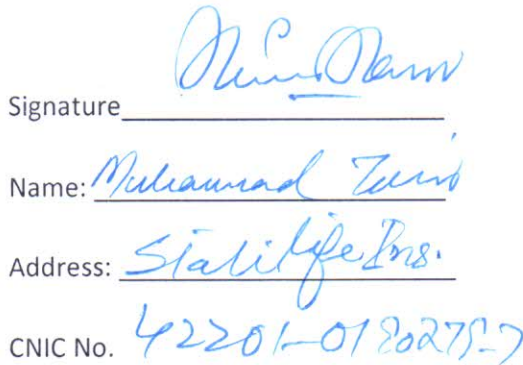 Signature
Name: Muhammad
Address: State Life Ins.
CNIC No. 42201-0180275-7